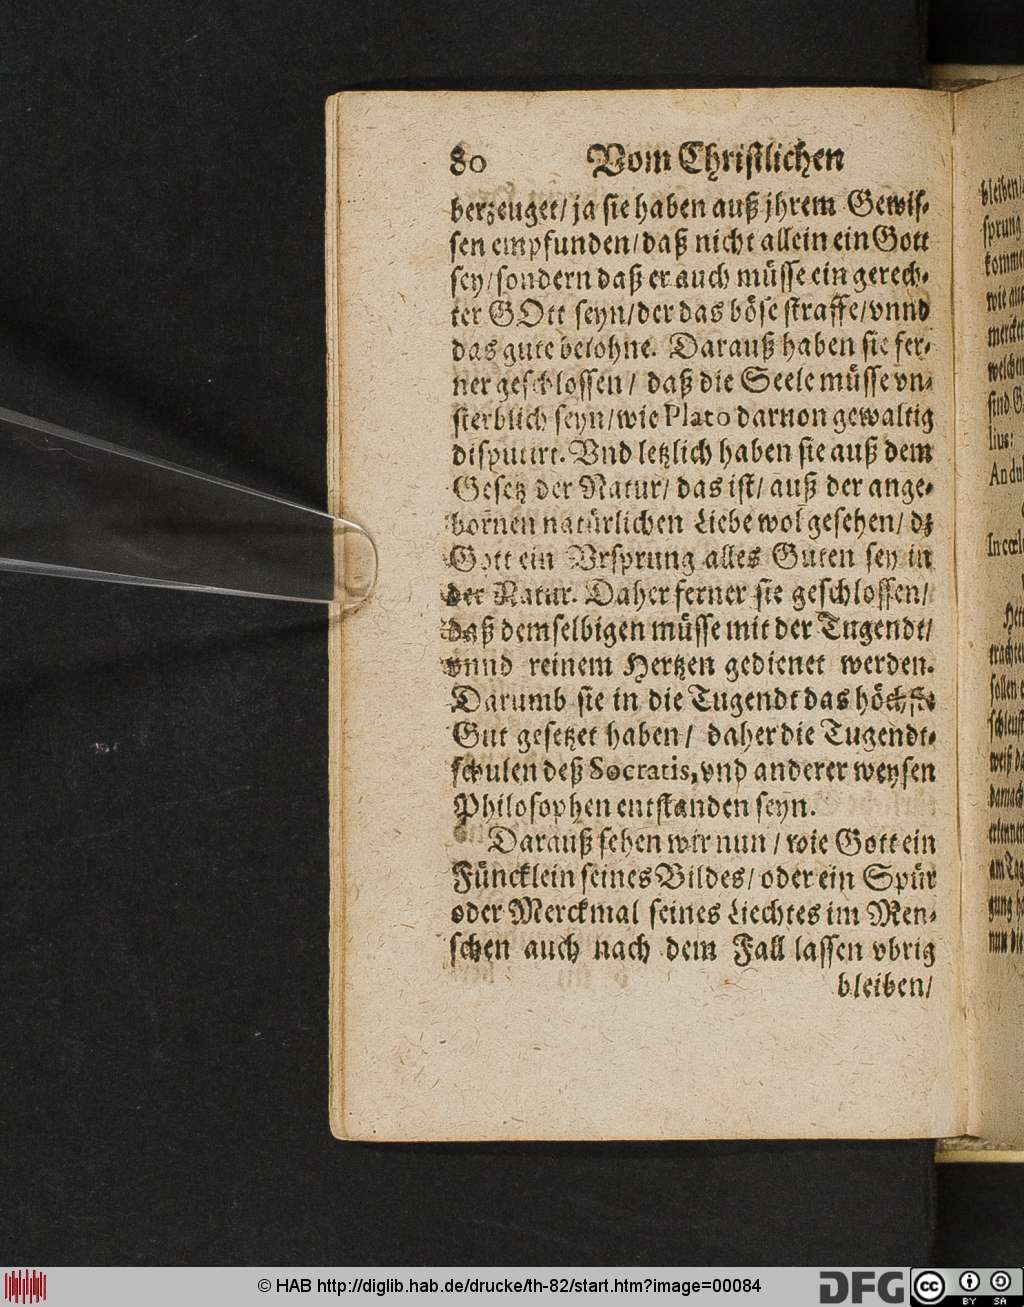 80 Vom Christlichen
berzeuget/ ja sie haben auß jhrem Gewis-
sen empfunden/ daß nicht allein ein Gott
sey/ sondern daß er auch müsse ein gerech-
ter GOtt seyn/ der das böse straffe/ vnnd
das gute belohne. Darauß haben sie fer-
ner geschlossen/ daß die Seele müsse vn-
sterblich seyn/ wie Plato darnon gewaltig
disputirt. Vnd letzlich haben sie auß dem
Gesetz der Natur/ das ist/ auß der ange-
bornen natürlichen Liebe wol gesehen/ dz
Gott ein Vrsprung alles Guten sey in
der Natur. Daher ferner sie geschlossen/
daß demselbigen müsse mit der Tugendt/
vnnd reinem Hertzen gedienet werden.
Darumb sie in die Tugendt das höchste
Gut gesetzet haben/ daher die Tugendt-
schulen deß Socratis, vnd anderer weysen
Philosophen entstanden seyn.
Darauß sehen wir nun/ wie Gott ein
Füncklein seines Bildes/ oder ein Spür
oder Merckmal seines Liechtes im Men-
schen auch nach dem Fall lassen vbrig
bleiben/
bleiben/
sprung
komme
wie au
mercke
welche
sind G
lius:
Andul
In cœl
Her
trachte
sollen e
schleust
weiß da
darnach
erkenne
am Tag
gung h
nun die
© HAB http://diglib.hab.de/drucke/th-82/start.htm?image=00084
DFG
cc BY SA